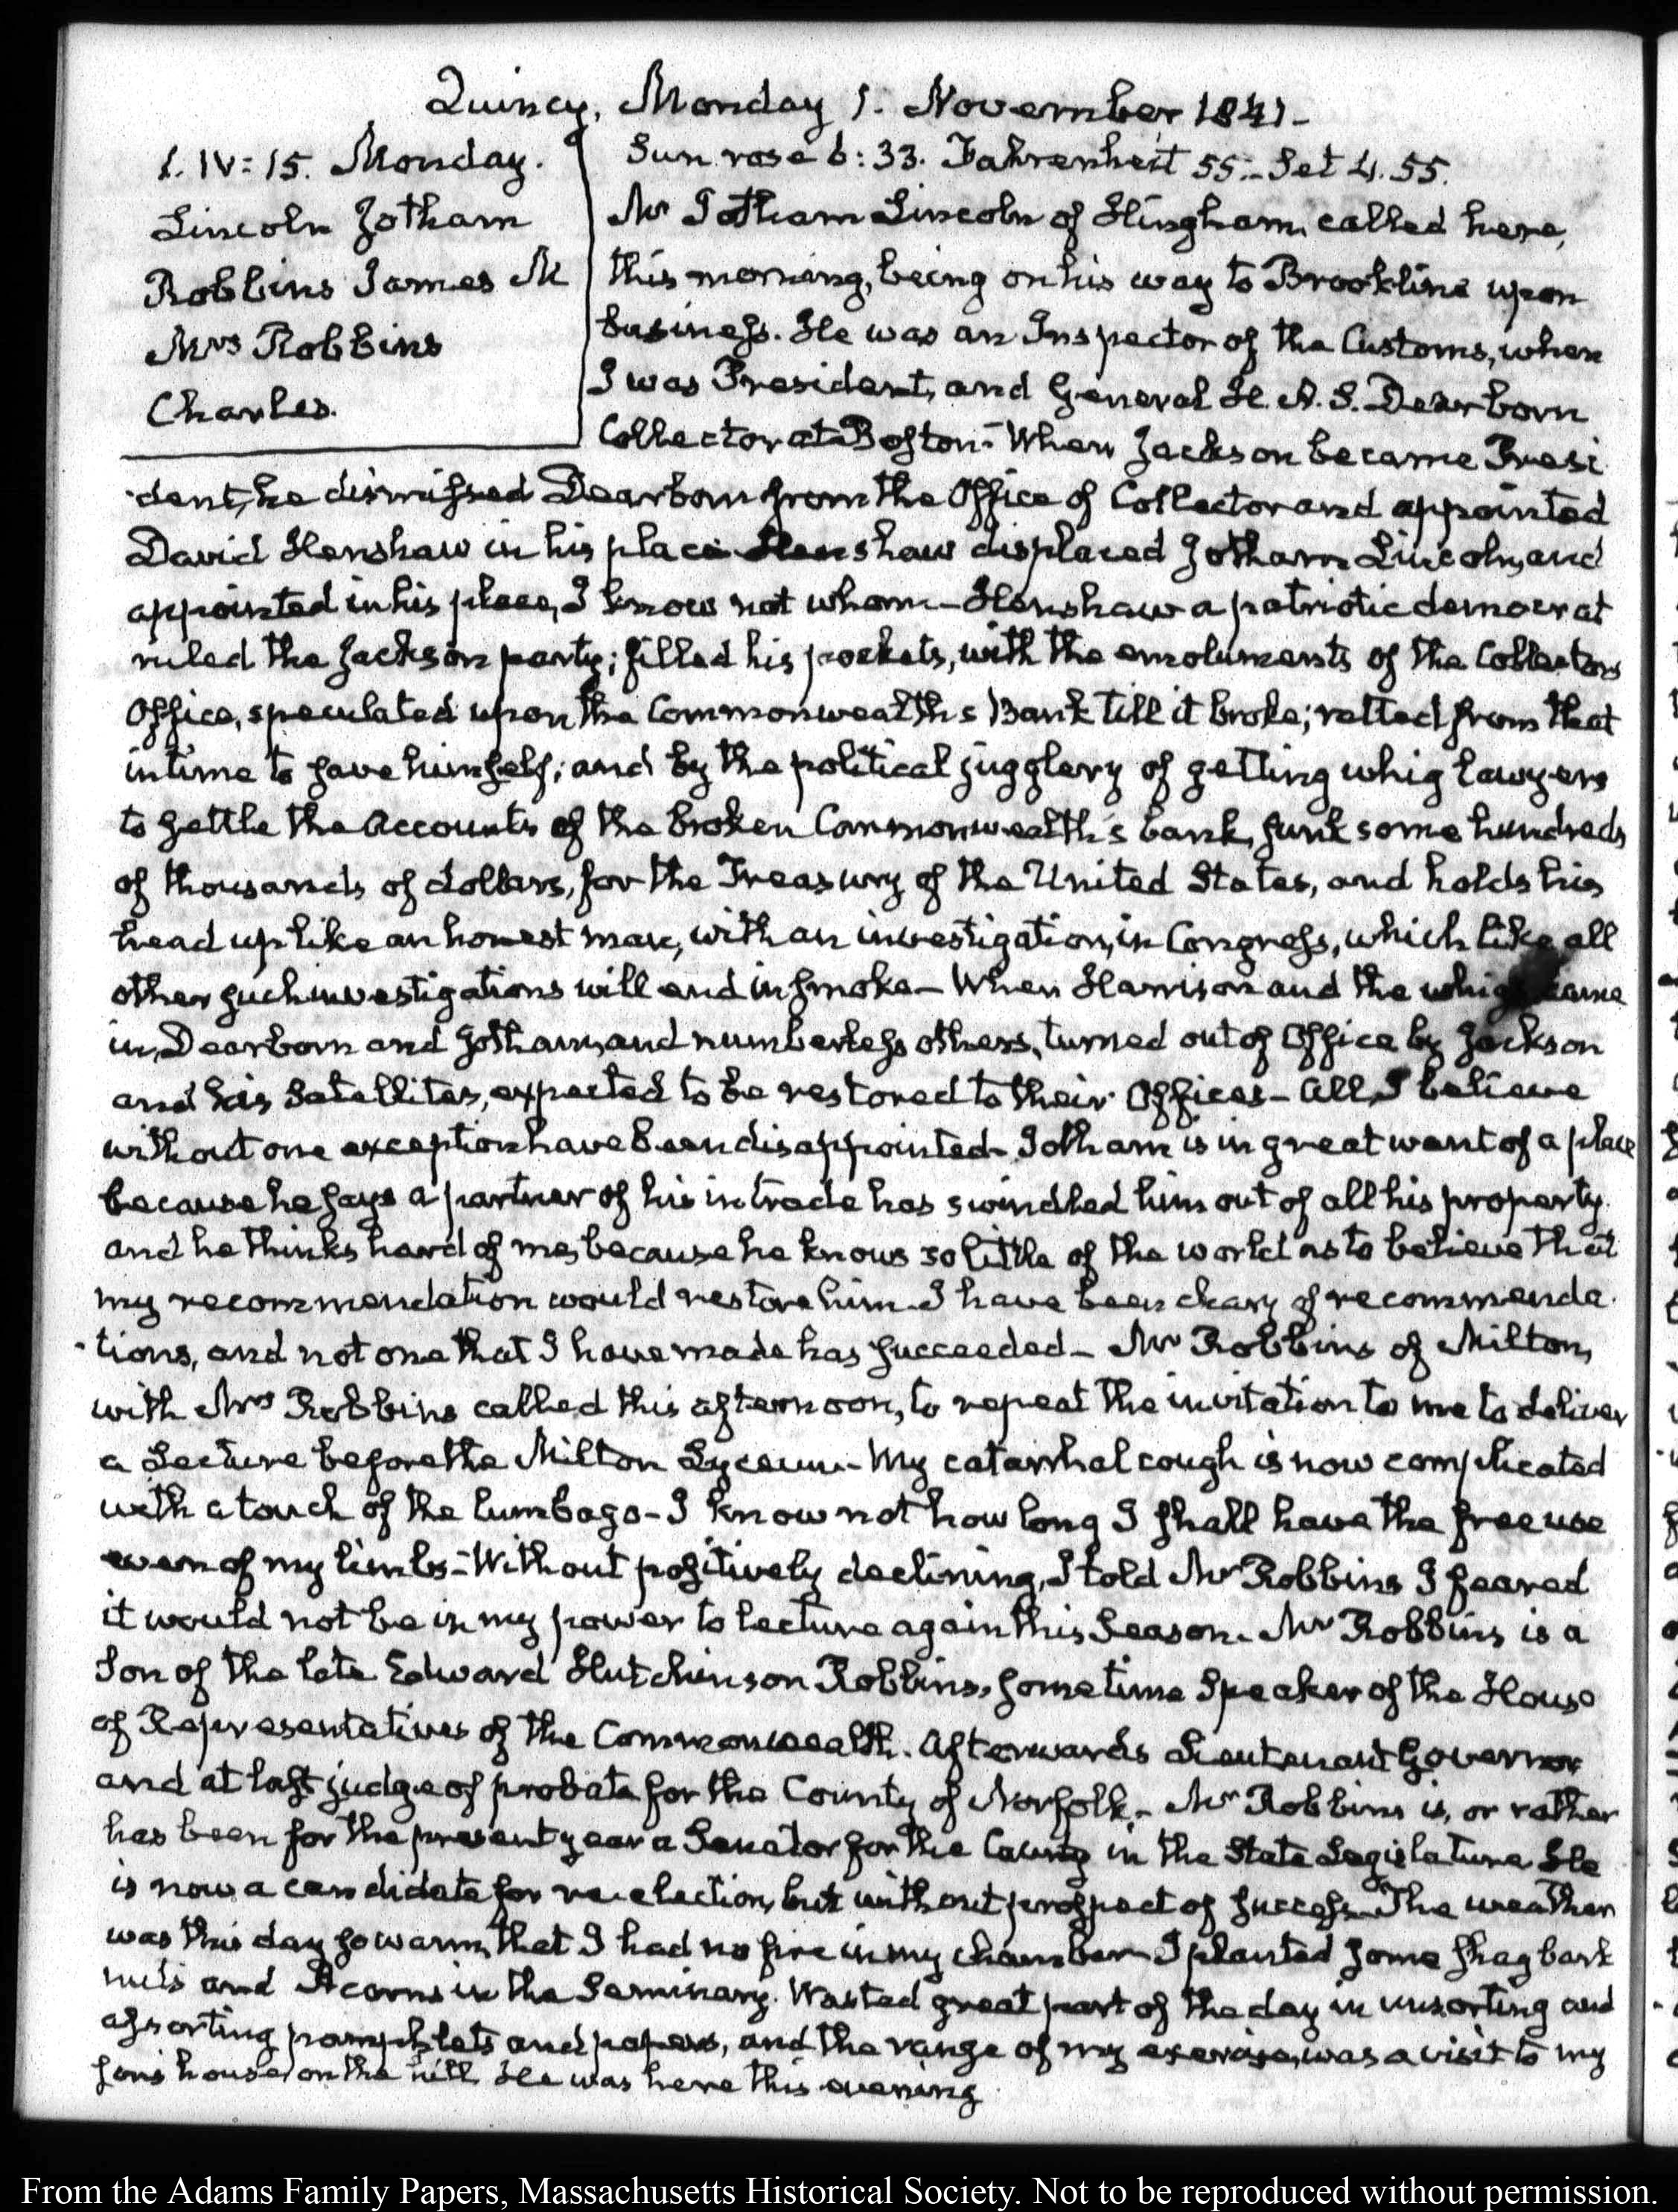 Quincy, Monday 1. November 1841-
1. IV: 15. Monday.
Lincoln Jotham
Robbins James M
Mrs Robbins
Charles.
Sun rose 6:33. Fahrenheit 55. Set 4.55.
Mr Jotham Lincoln of Hingham, called here,
this morning, being on his way to Brookline upon
business. He was an Inspector of the Customs, when
I was President, and General H. A. S. Dearborn
Collector at Boston- When Jackson became Presi
dent, he dismissed Dearborn from the Office of Collector and appointed
David Henshaw in his place Henshaw displaced Jotham Lincoln, and
appointed in his place, I know not whom- Henshaw a patriotic democrat
ruled the Jackson party; filled his pockets, with the emoluments of the Collectors
Office, speculated upon the Commonwealths Bank till it broke; ratted from that
in time to save himself; and by the political jugglery of getting whig lawyers
to settle the Accounts of the broken Commonwealth's bank, sunk some hundreds
of thousands of dollars, for the Treasury of the United States, and holds his
head up like an honest man, with an investigation, in Congress, which like all
other such investigations will end in smoke- When Harrison and the whigs came
in, Dearborn and Jotham, and numberless others, turned out of Office by Jackson
and his Satellites, expected to be restored to their Offices- All, I believe
without one exception have been disappointed- Jotham is in great want of a place
because he says a partner of his in trade has swindled him out of all his property.
and he thinks hard of me, because he knows so little of the world as to believe that
my recommendation would restore him- I have been chary of recommenda-
-tions, and not one that I have made has succeeded- Mr Robbins of Milton,
with Mrs Robbins called this afternoon, to repeat the invitation to me to deliver
a Lecture before the Milton Lyceum- My catarrhal cough is now complicated
with a touch of the lumbago- I know not how long I shall have the free use
even of my limbs- Without positively declining, I told Mr Robbins I feared
it would not be in my power to lecture again this Season. Mr Robbins is a
Son of the late Edward Hutchinson Robbins, sometime Speaker of the House
of Representatives of the Commonwealth. Afterwards Lieutenant Governor
and at last judge of probate for the County of Norfolk.- Mr Robbins is, or rather
has been for the present year a Senator for the County in the State Legislature He
is now a candidate for re-election, but without prospect of success- The weather
was this day so warm, that I had no fire in my chamber- I planted some shagbark
nuts and Acorns in the Seminary. Wasted great part of the day in unsorting and
assorting pamphlets and papers, and the range of my exercise, was a visit to my
son's house, on the hill He was here this evening
From the Adams Family Papers, Massachusetts Historical Society. Not to be reproduced without permission.